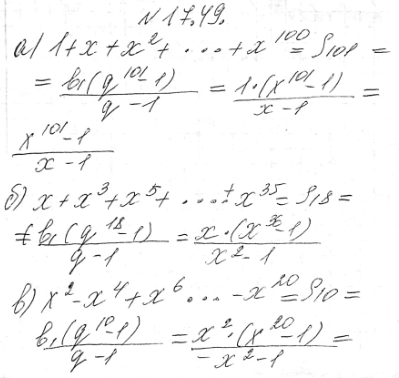 № 17.49.
а) 1 + x + x² + ... + x¹⁰⁰ = S₁₀₁ =
= b₁(q¹⁰¹-1)/(q-1) = 1·(x¹⁰¹-1)/(x-1) =
(x¹⁰¹-1)/(x-1)
б) x + x³ + x⁵ + ... + x³⁵ = S₁₈ =
= b₁(q¹⁸-1)/(q-1) = x·(x³⁶-1)/(x²-1)
в) x² - x⁴ + x⁶ ... - x²⁰ = S₁₀ =
b₁(q¹⁰-1)/(q-1) = x²·(x²⁰-1)/(-x²-1) =